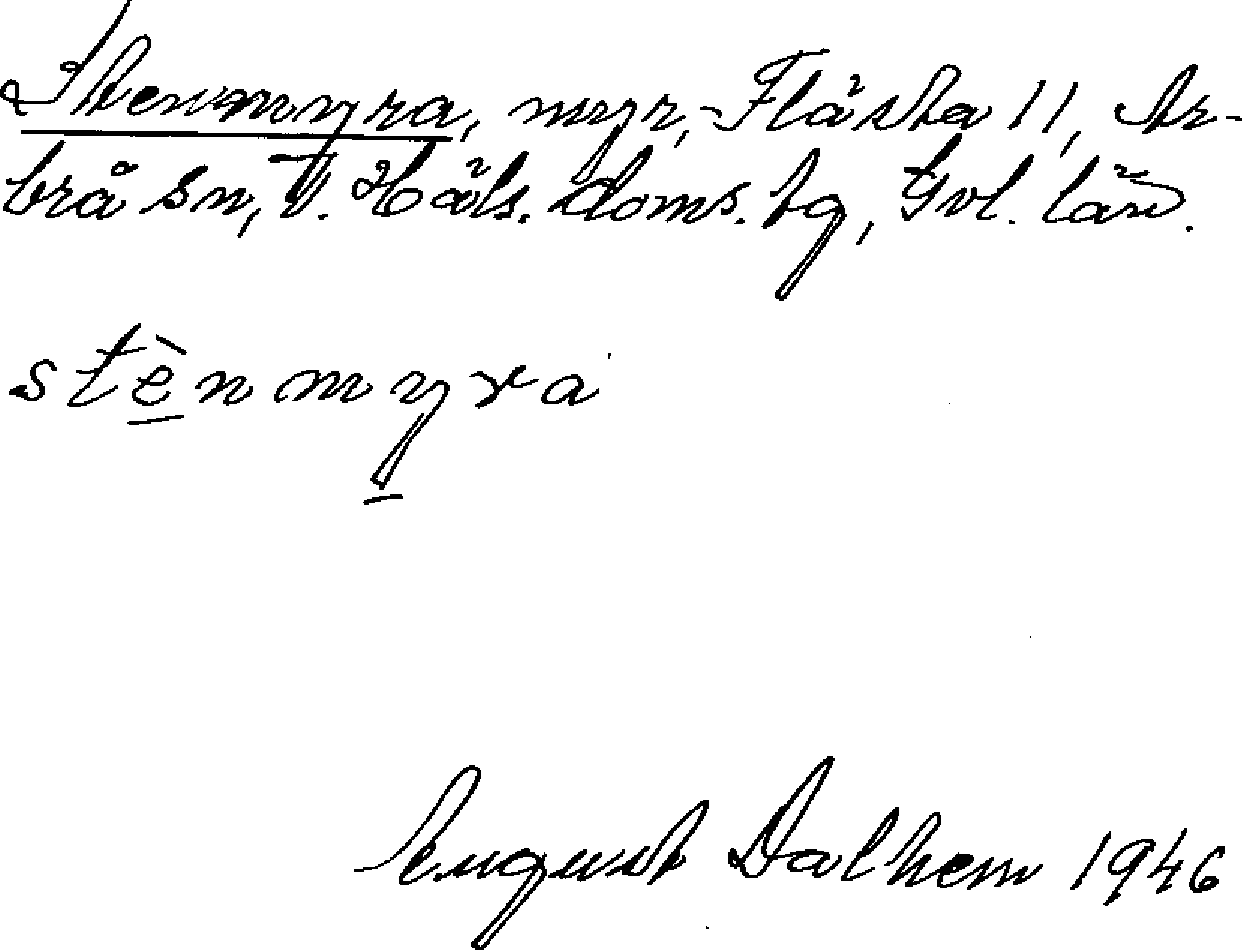 Stenmyra, myr, Flästa 11, Ar-
brå sn, V. Häls. doms. tg, Gvl. län.
stènmyra
August Dalhem 1946